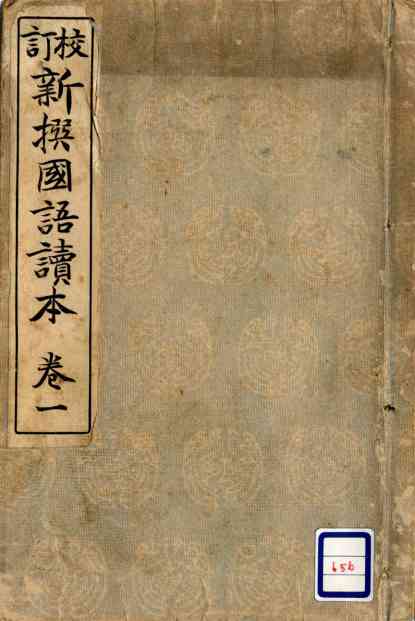 校訂
新撰國語讀本 卷一
656